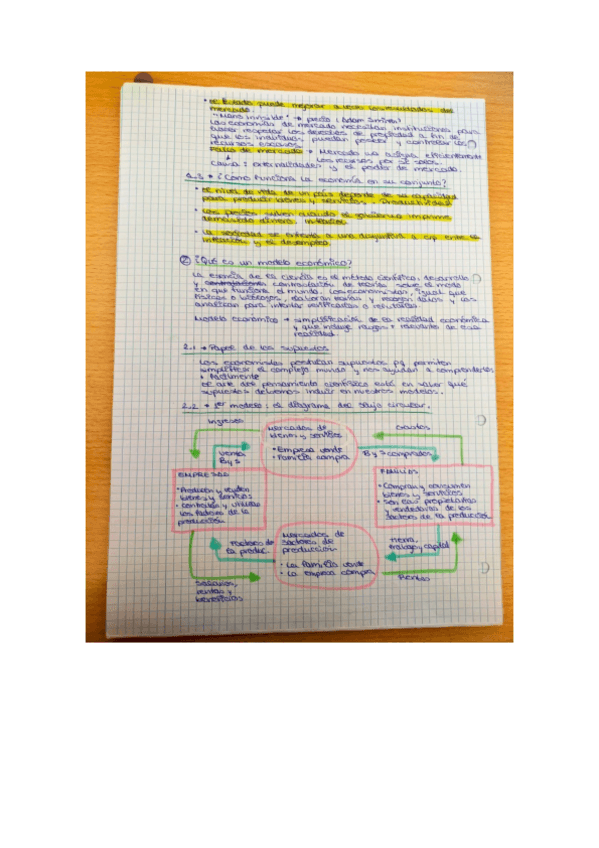 • El Estado puede mejorar a veces los resultados del
mercado.
"Mano invisible" → precio (Adam Smith)
Las economías de mercado necesitan instituciones para
hacer respetar los derechos de propiedad a fin de
que los individuos puedan poseer y controlar los
recursos escasos.
Fallo de mercado → Mercado no asigna eficientemente
los recursos por sí solos.
Causa: externalidades y el poder de mercado.
1.3 • ¿Cómo funciona la economía en su conjunto?
• El nivel de vida de un país depende de su capacidad
para producir bienes y servicios. Productividad
• Los precios suben cuando el gobierno imprime
demasiado dinero. Inflación
• La sociedad se enfrenta a una disyuntiva a c/p entre la
inflación y el desempleo.
② ¿Qué es un modelo económico?
La esencia de la ciencia es el método científico: desarrollo
y contrastación de teorías sobre el modo
en que funciona el mundo. Los economistas, igual que
físicos o biólogos, elaboran teorías y recogen datos y los
analizan para intentar verificarlas o refutarlas
Modelo económico → simplificación de la realidad económica
y que incluye rasgos + relevantes de esa
realidad.
2.1 • Papel de los supuestos
Los economistas postulan supuestos pq permiten
simplificar el complejo mundo y nos ayudan a comprenderlo
+ fácilmente
El arte del pensamiento científico está en saber qué
supuestos debemos incluir en nuestros modelos.
2.2 • 1er modelo: el diagrama del flujo circular.
Ingresos
Mercados de
bienes y servicios
• Empresa vende
• Familia compra
Gastos
Venta
B y S
B y S comprados
EMPRESAS
• Producen y venden
bienes y servicios
• Contratan y utilizan
los factores de la
producción
FAMILIAS
• Compran y consumen
bienes y servicios
• Son las propietarias
y vendedoras de los
factores de la producción
Factores de
la produc.
Mercados de
factores de
producción
• La familia vende
• La empresa compra
Tierra,
trabajo y capital
Salarios,
rentas y
beneficios
Rentas